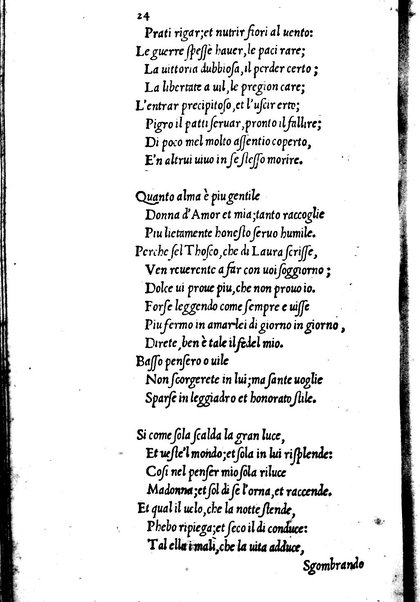 24
Prati rigar; et nutrir fiori al uento:
Le guerre ſpeſſe hauer, le paci rare;
La uittoria dubbioſa, il perder certo;
La libertate a uil, le pregion care;
L'entrar precipitoſo, et l'uſcir erto;
Pigro il patti ſeruar, pronto il fallire;
Di poco mel molto aſſentio coperto,
E'n altrui uiuo in ſe ſteſſo morire.
Quanto alma è piu gentile
Donna d'Amor et mia; tanto raccoglie
Piu lietamente honeſto ſeruo humile.
Perche ſel Thoſco, che di Laura ſcriſſe,
Ven reuerente a far con uoi ſoggiorno;
Dolce ui proue piu, che non prouo io.
Forſe leggendo come ſempre e uiſſe
Piu fermo in amarlei di giorno in giorno,
Direte, ben è tale il fedel mio.
Baſſo penſero o uile
Non ſcorgerete in lui; ma ſante uoglie
Sparſe in leggiadro et honorato ſtile.
Si come ſola ſcalda la gran luce,
Et ueſte'l mondo; et ſola in lui riſplende:
Coſi nel penſer mio ſola riluce
Madonna; et ſol di ſe l'orna, et raccende.
Et qual il uelo, che la notte ſtende,
Phebo ripiega; et ſeco il di conduce:
Tal ella i mali, che la uita adduce,
Sgombrando